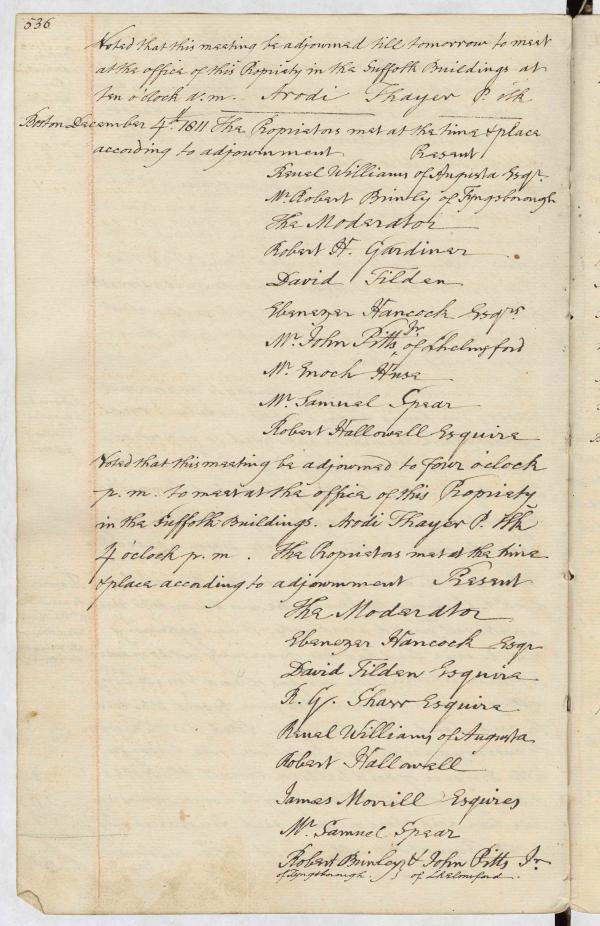 536
Voted that this meeting be adjourned till tomorrow to meet
at the office of this Propriety in the Suffolk Buildings at
ten o'clock A.m. Arodi Thayer P. Clk
Boston December 4th. 1811 The Proprietors met at the time & place
according to adjournment Present
Reuel Williams of Augusta Esqr.
Mr. Robert Brinley of Tyngsborough
The Moderator
Robert H. Gardiner
David Tilden
Ebenezer Hancock Esqrs.
Mr. John Pitts Jr. of Chelmsford
Mr. Enoch Huse
Mr. Samuel Spear
Robert Hallowell Esquire
Voted that this meeting be adjourned to four o'clock
p.m. to meet at the office of this Propriety
in the Suffolk Buildings. Arodi Thayer P. Clk
4 o'clock p.m. The Proprietors met at the time
& place according to adjournment Present
The Moderator
Ebenezer Hancock Esqr
David Tilden Esquire
R. G. Shaw Esquire
Reuel Williams of Augusta
Robert Hallowell
James Morrill Esquires
Mr. Samuel Spear
Robert Brinley & John Pitts Jr.
of Tyngsborough of Chelmsford.